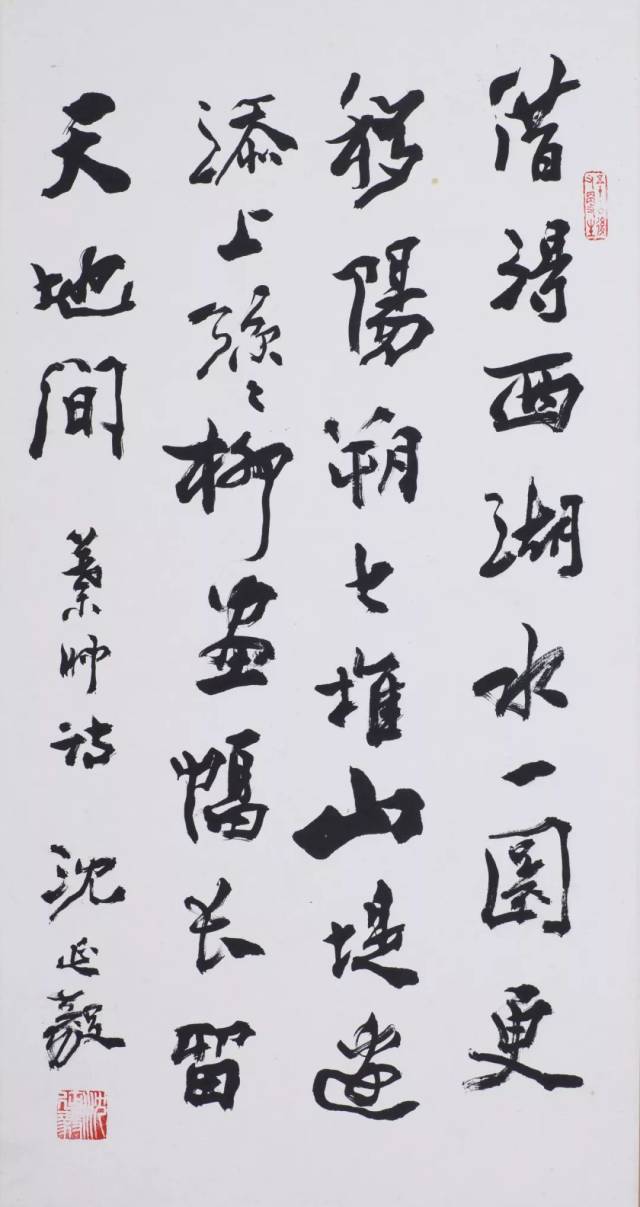 借得西湖水一圜更
移陽朔七堆山堤邊
添上絲〻柳畫幅长留
天地間 葉帥詩 沈延毅